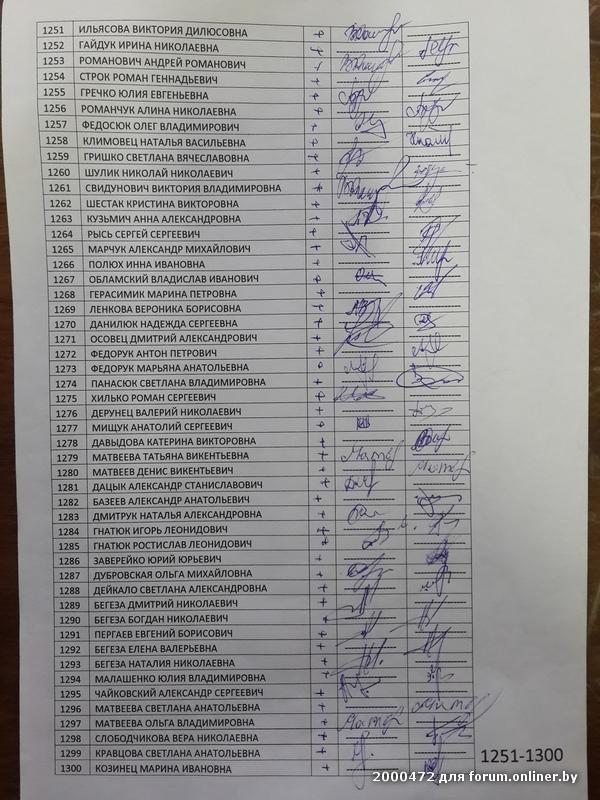 1251 ИЛЬЯСОВА ВИКТОРИЯ ДИЛЮСОВНА +
1252 ГАЙДУК ИРИНА НИКОЛАЕВНА +
1253 РОМАНОВИЧ АНДРЕЙ РОМАНОВИЧ +
1254 СТРОК РОМАН ГЕННАДЬЕВИЧ +
1255 ГРЕЧКО ЮЛИЯ ЕВГЕНЬЕВНА +
1256 РОМАНЧУК АЛИНА НИКОЛАЕВНА +
1257 ФЕДОСЮК ОЛЕГ ВЛАДИМИРОВИЧ +
1258 КЛИМОВЕЦ НАТАЛЬЯ ВАСИЛЬЕВНА +
1259 ГРИШКО СВЕТЛАНА ВЯЧЕСЛАВОВНА +
1260 ШУЛИК НИКОЛАЙ НИКОЛАЕВИЧ +
1261 СВИДУНОВИЧ ВИКТОРИЯ ВЛАДИМИРОВНА +
1262 ШЕСТАК КРИСТИНА ВИКТОРОВНА +
1263 КУЗЬМИЧ АННА АЛЕКСАНДРОВНА +
1264 РЫСЬ СЕРГЕЙ СЕРГЕЕВИЧ +
1265 МАРЧУК АЛЕКСАНДР МИХАЙЛОВИЧ +
1266 ПОЛЮХ ИННА ИВАНОВНА +
1267 ОБЛАМСКИЙ ВЛАДИСЛАВ ИВАНОВИЧ
1268 ГЕРАСИМИК МАРИНА ПЕТРОВНА +
1269 ЛЕНКОВА ВЕРОНИКА БОРИСОВНА +
1270 ДАНИЛЮК НАДЕЖДА СЕРГЕЕВНА +
1271 ОСОВЕЦ ДМИТРИЙ АЛЕКСАНДРОВИЧ +
1272 ФЕДОРУК АНТОН ПЕТРОВИЧ +
1273 ФЕДОРУК МАРЬЯНА АНАТОЛЬЕВНА
1274 ПАНАСЮК СВЕТЛАНА ВЛАДИМИРОВНА +
1275 ХИЛЬКО РОМАН СЕРГЕЕВИЧ +
1276 ДЕРУНЕЦ ВАЛЕРИЙ НИКОЛАЕВИЧ +
1277 МИЩУК АНАТОЛИЙ СЕРГЕЕВИЧ
1278 ДАВЫДОВА КАТЕРИНА ВИКТОРОВНА +
1279 МАТВЕЕВА ТАТЬЯНА ВИКЕНТЬЕВНА +
1280 МАТВЕЕВ ДЕНИС ВИКЕНТЬЕВИЧ +
1281 ДАЦЫК АЛЕКСАНДР СТАНИСЛАВОВИЧ +
1282 БАЗЕЕВ АЛЕКСАНДР АНАТОЛЬЕВИЧ +
1283 ДМИТРУК НАТАЛЬЯ АЛЕКСАНДРОВНА +
1284 ГНАТЮК ИГОРЬ ЛЕОНИДОВИЧ +
1285 ГНАТЮК РОСТИСЛАВ ЛЕОНИДОВИЧ +
1286 ЗАВЕРЕЙКО ЮРИЙ ЮРЬЕВИЧ +
1287 ДУБРОВСКАЯ ОЛЬГА МИХАЙЛОВНА +
1288 ДЕЙКАЛО СВЕТЛАНА АЛЕКСАНДРОВНА +
1289 БЕГЕЗА ДМИТРИЙ НИКОЛАЕВИЧ +
1290 БЕГЕЗА БОГДАН НИКОЛАЕВИЧ +
1291 ПЕРГАЕВ ЕВГЕНИЙ БОРИСОВИЧ +
1292 БЕГЕЗА ЕЛЕНА ВАЛЕРЬЕВНА +
1293 БЕГЕЗА НАТАЛИЯ НИКОЛАЕВНА +
1294 МАЛАШЕНКО ЮЛИЯ ВЛАДИМИРОВНА +
1295 ЧАЙКОВСКИЙ АЛЕКСАНДР СЕРГЕЕВИЧ +
1296 МАТВЕЕВА СВЕТЛАНА АНАТОЛЬЕВНА +
1297 МАТВЕЕВА ОЛЬГА ВЛАДИМИРОВНА +
1298 СЛОБОДЧИКОВА ВЕРА НИКОЛАЕВНА +
1299 КРАВЦОВА СВЕТЛАНА АНАТОЛЬЕВНА +
1300 КОЗИНЕЦ МАРИНА ИВАНОВНА +
1251-1300
2000472 для forum.onliner.by